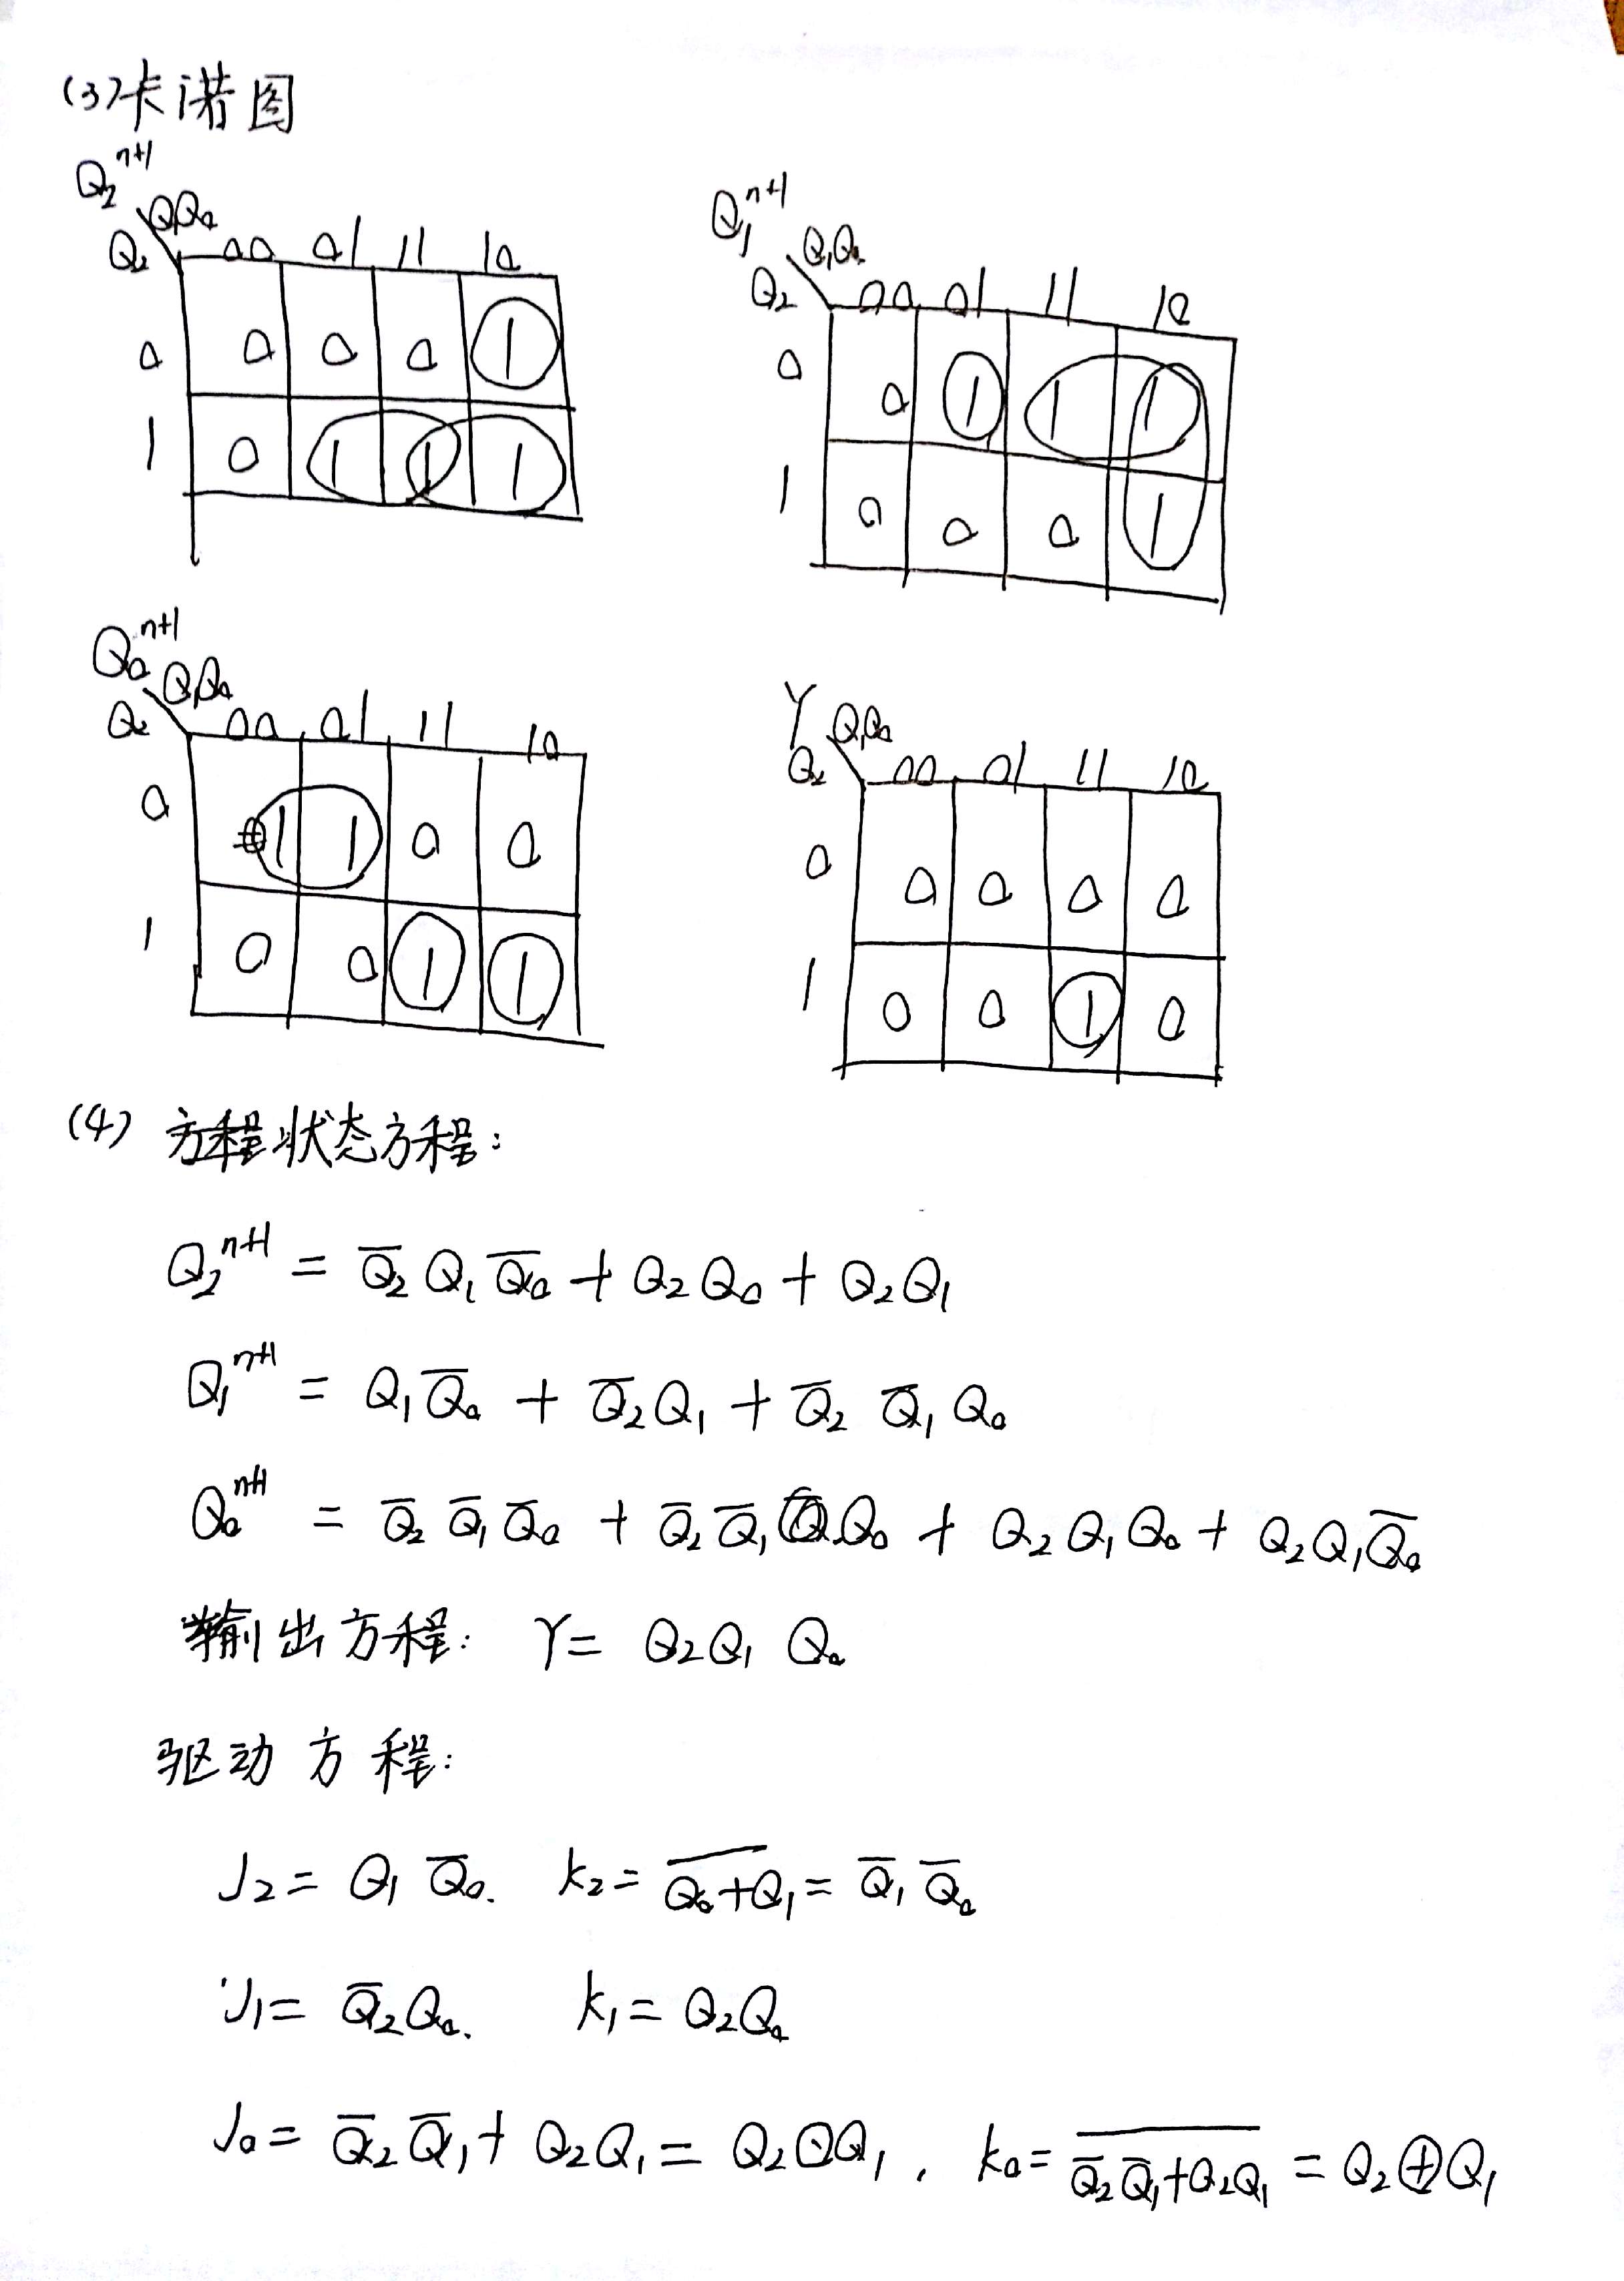 (3)卡诺图
Q₂ⁿ⁺¹
Q₁Q₀
Q₂ 00 01 11 10
0 0 0 0 1
1 0 1 1 1
Q₁ⁿ⁺¹
Q₁Q₀
Q₂ 00 01 11 10
0 0 1 1 1
1 0 0 0 1
Q₀ⁿ⁺¹
Q₁Q₀
Q₂ 00 01 11 10
0 1 1 0 0
1 0 0 1 1
Y Q₁Q₀
Q₂ 00 01 11 10
0 0 0 0 0
1 0 0 1 0
(4) 状态方程:
Q₂ⁿ⁺¹ = Q̅₂ Q₁ Q̅₀ + Q₂ Q₀ + Q₂Q₁
Q₁ⁿ⁺¹ = Q₁Q̅₀ + Q̅₂Q₁ + Q̅₂ Q̅₁ Q₀
Q₀ⁿ⁺¹ = Q̅₂ Q̅₁ Q̅₀ + Q̅₂ Q̅₁ Q₀ + Q₂Q₁Q₀ + Q₂Q₁Q̅₀
输出方程: Y = Q₂Q₁ Q₀
驱动方程:
J₂ = Q₁ Q̅₀. K₂ = \overline{Q₀+Q₁} = Q̅₁ Q̅₀
J₁ = Q̅₂Q₀. K₁ = Q₂Q₀
J₀ = Q̅₂Q̅₁ + Q₂Q₁ = Q₂⊙Q₁, K₀ = \overline{Q̅₂Q̅₁+Q₂Q₁} = Q₂⊕Q₁